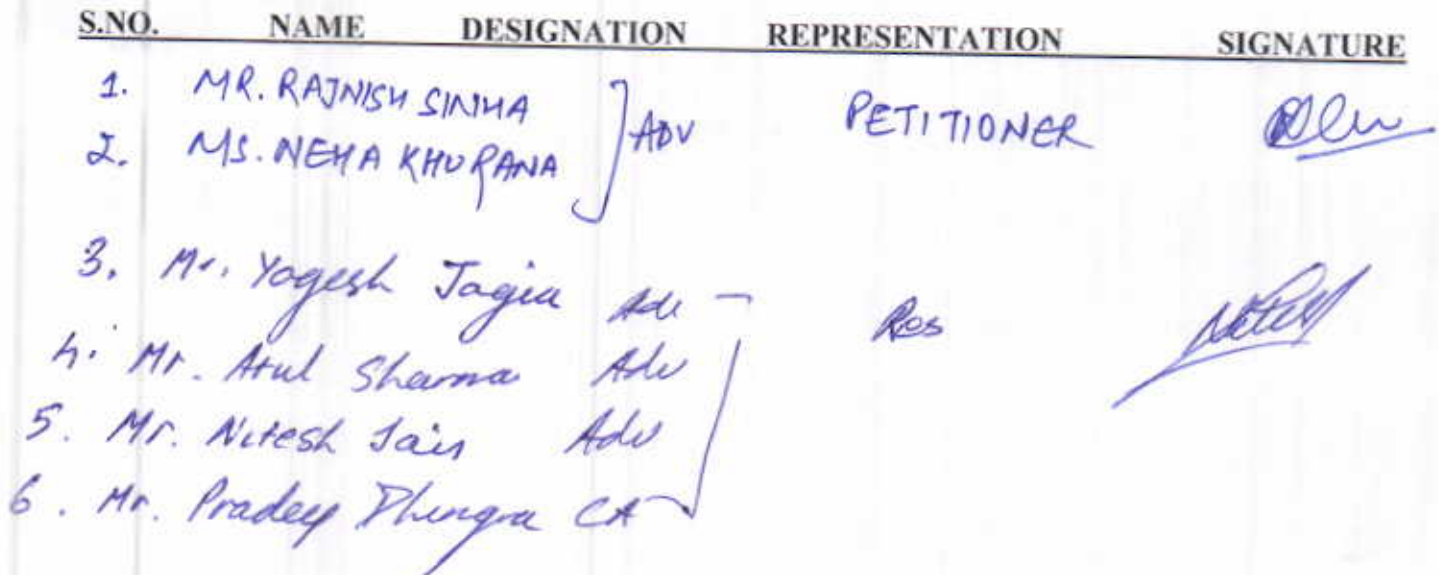 S.NO. NAME DESIGNATION REPRESENTATION SIGNATURE
1. MR. RAJNISH SINHA
ADV PETITIONER
2. MS. NEHA KHURANA
3. Mr. Yogesh Jagia Adv Res
4. Mr. Atul Sharma Adv
5. Mr. Nitesh Jain Adv
6. Mr. Pradeep Dhingra CA